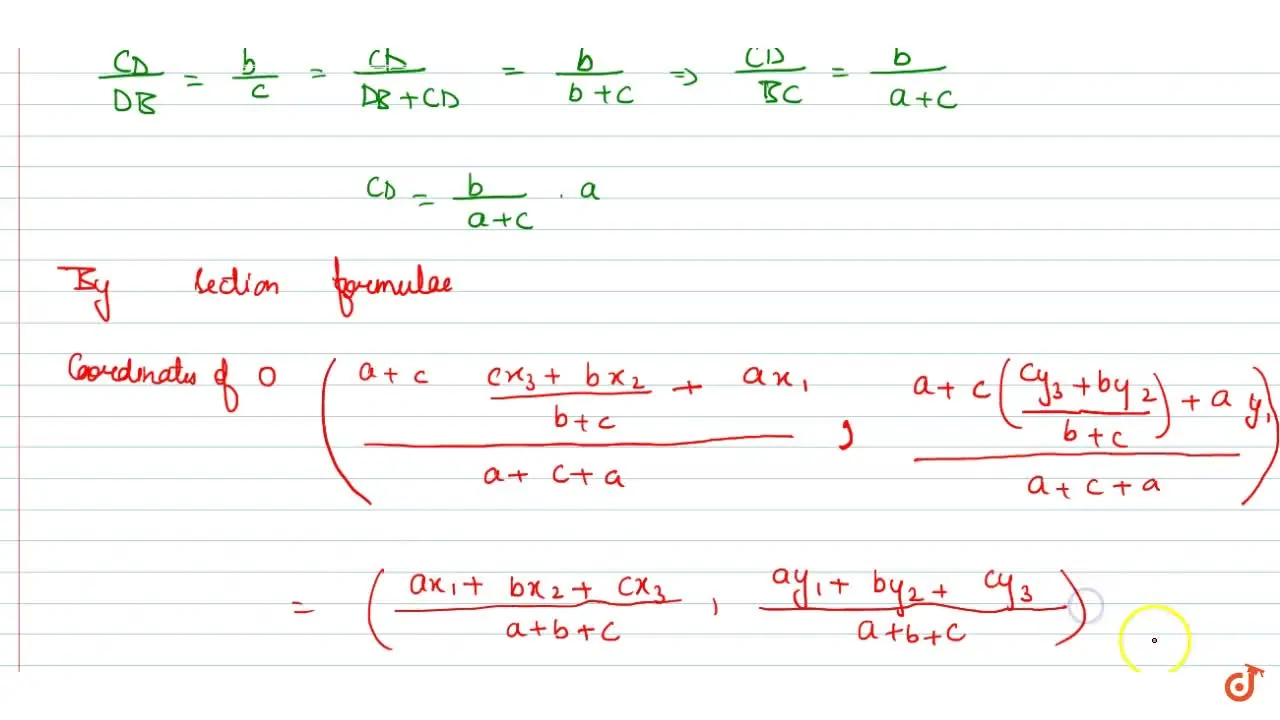 CD/DB = b/c = CD/(DB+CD) = b/(b+c) ⇒ CD/BC = b/(a+c)
CD = b/(a+c) . a
By section formulae
Coordinates of O ( (a+c cx₃+bx₂/(b+c) + ax₁)/(a+c+a) , (a+c(cy₃+by₂/(b+c)) + a y₁)/(a+c+a) )
= ( (ax₁+bx₂+cx₃)/(a+b+c) , (ay₁+by₂+cy₃)/(a+b+c) )